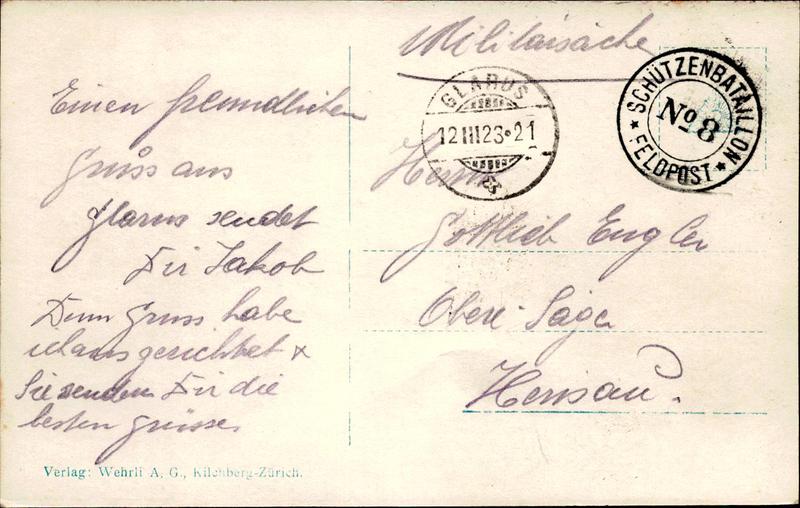 Einen freundlichen
Gruss aus
Glarus sendet
Dir Jakob
Deinen Gruss habe
ich ausgerichtet &
Sie senden Dir die
besten Grüsse.
Verlag: Wehrli A. G., Kilchberg-Zürich.
Militärsache
GLARUS
12 III 23·21
SCHÜTZENBATAILLON
No 8
★ FELDPOST ★
Herrn
Gottlieb Engler
Obere Säge
Herisau.